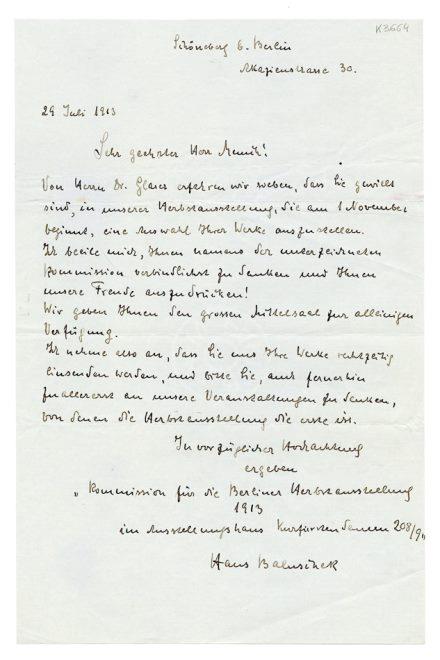 K3664
Schöneberg b. Berlin
Akazienstrasse 30.
29 Juli 1913
Sehr geehrter Herr Munch!
Von Herrn Dr. Glaser erfahren wir soeben, dass Sie gewillt
sind, in unserer Herbstausstellung, die am 1 November
beginnt, eine Auswahl Ihrer Werke auszustellen.
Ich beeile mich, Ihnen namens der unterzeichneten
Kommission verbindlichst zu danken und Ihnen
unsere Freude auszudrücken!
Wir geben Ihnen den grossen Mittelsaal zur alleinigen
Verfügung.
Ich nehme also an, dass Sie uns Ihre Werke rechtzeitig
einsenden werden, und bitte Sie, auch fernerhin
zuallererst an unsere Veranstaltungen zu denken,
von denen die Herbstausstellung die erste ist.
In vorzüglicher Hochachtung
ergeben
„Kommission für die Berliner Herbstausstellung
1913
im Ausstellungshaus Kurfürstendamm 208/9"
Hans Baluschek